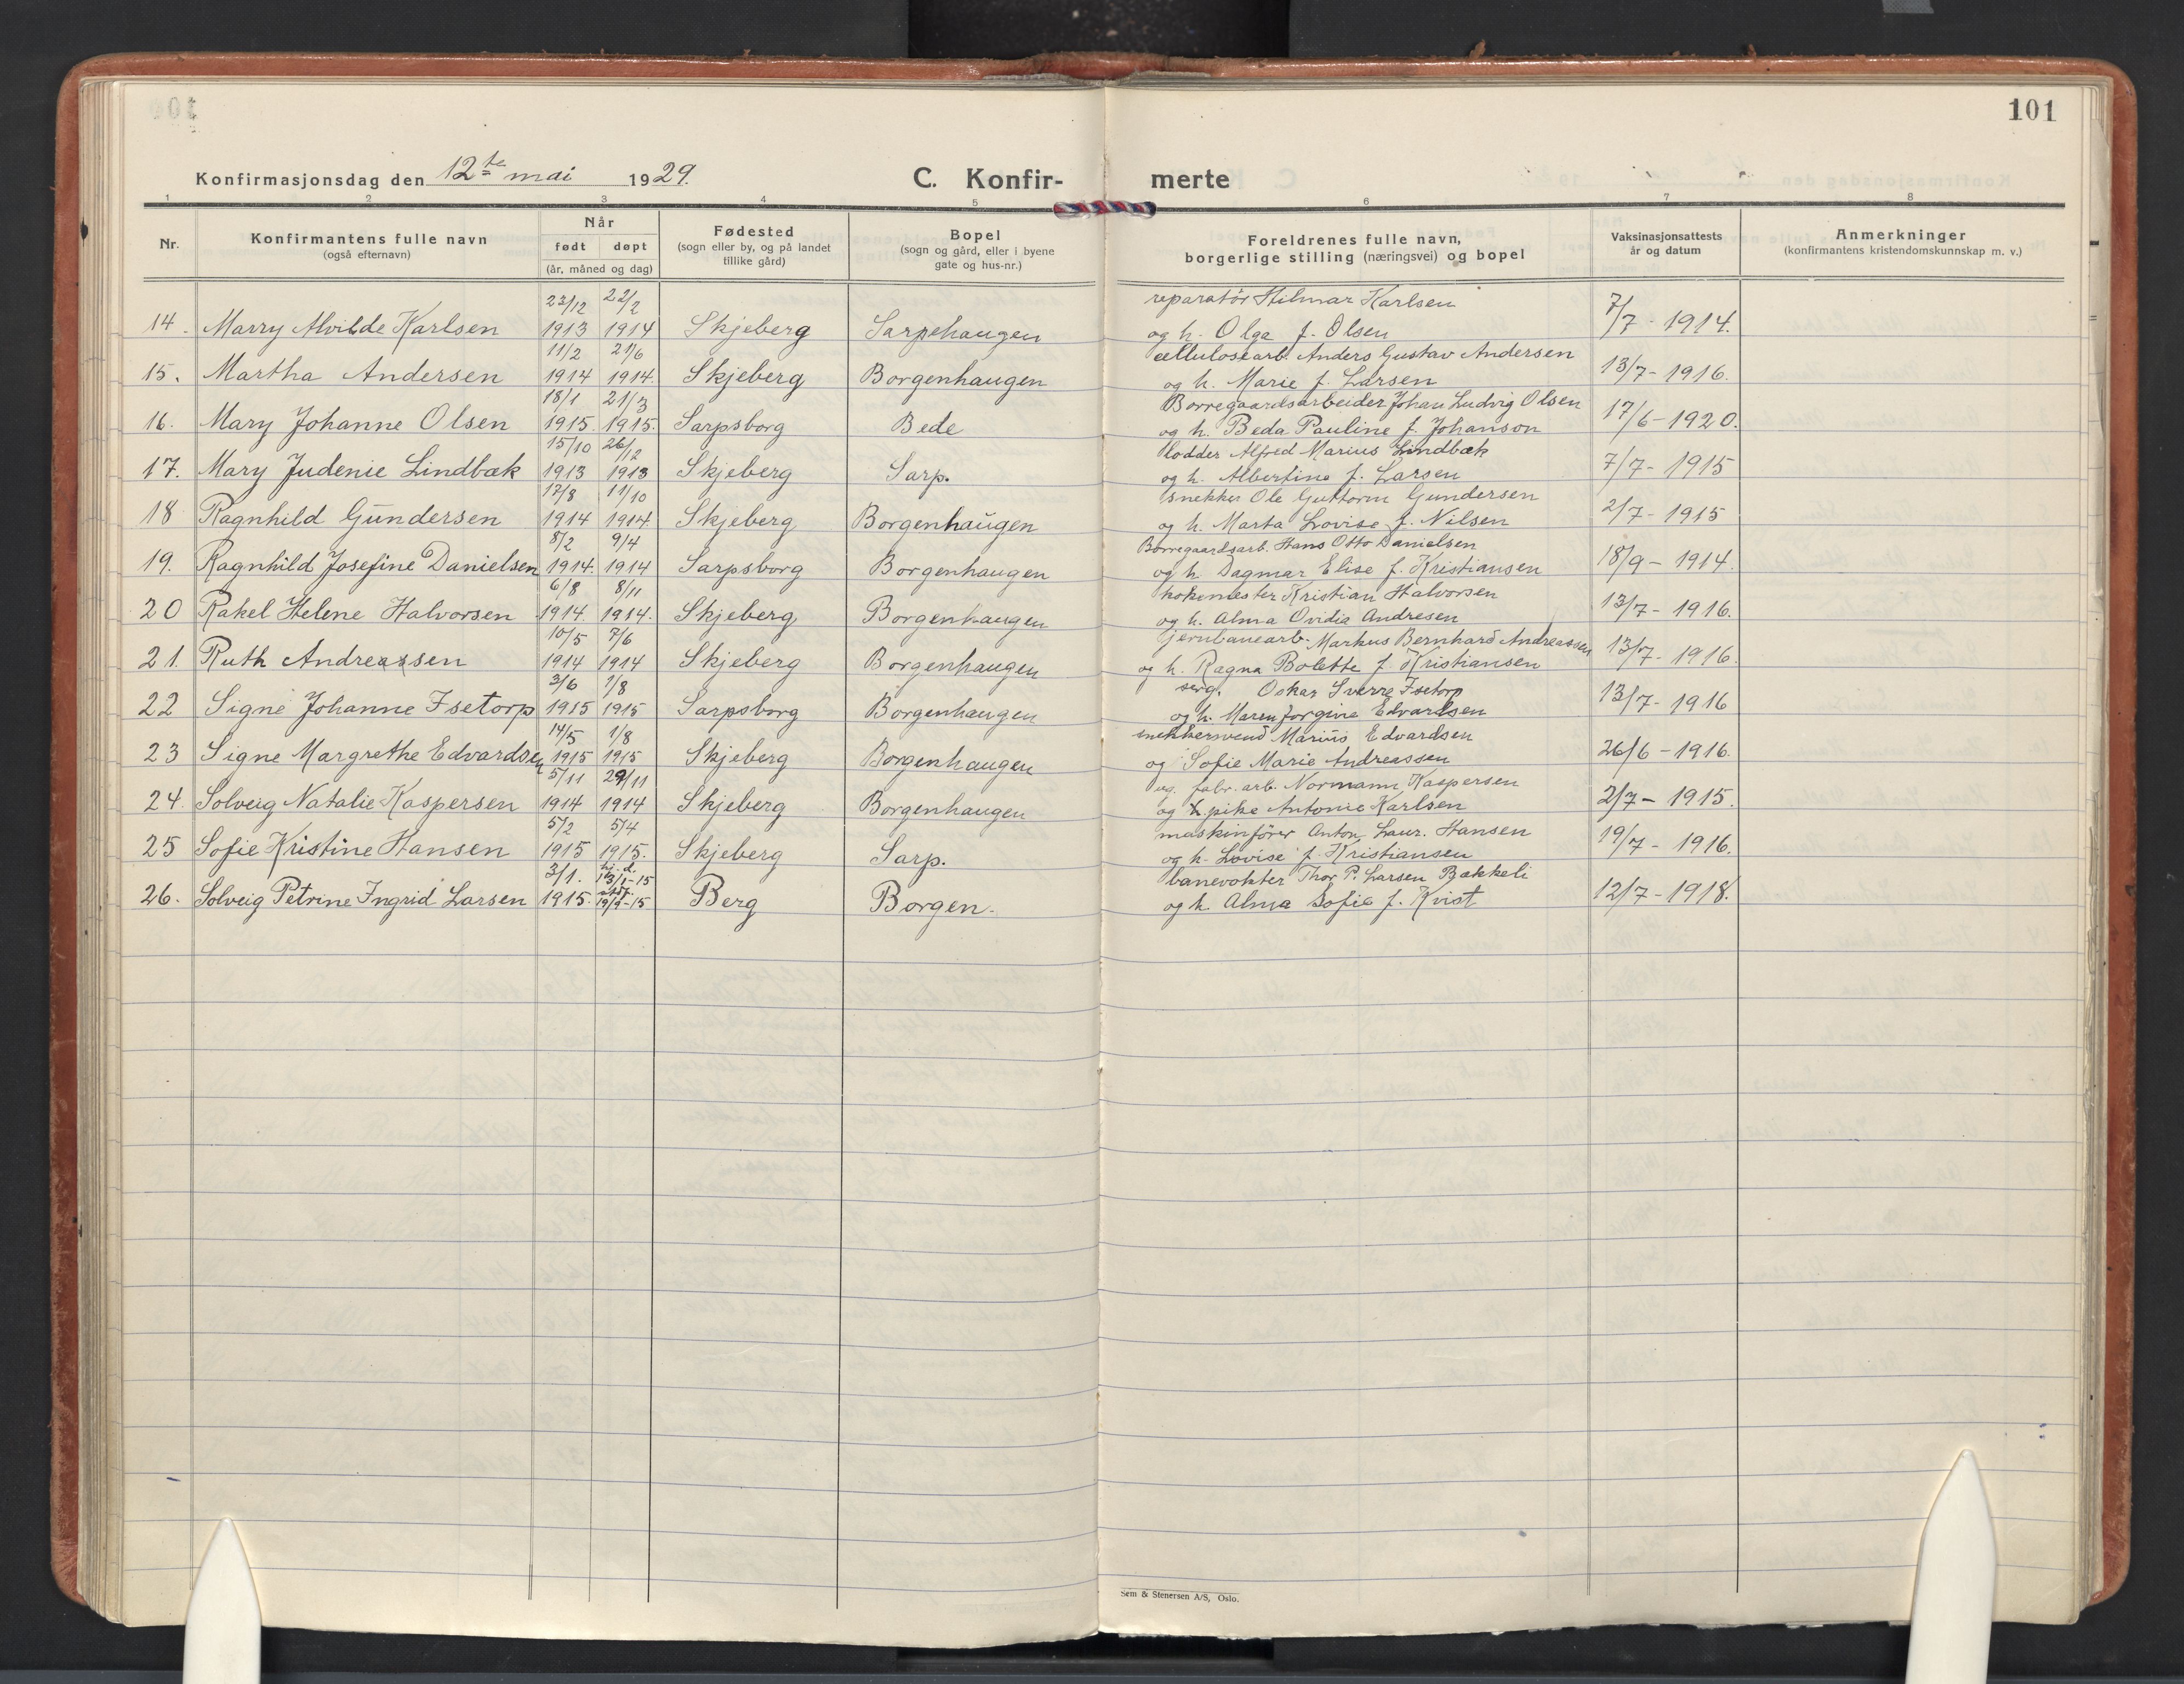 101
Konfirmasjonsdag den 12te mai 1929.
C. Konfir-merte
1 2 3 4 5 6 7 8
Nr.
Konfirmantens fulle navn
(også efternavn)
Når
født døpt
(år, måned og dag)
Fødested
(sogn eller by, og på landet
tillike gård)
Bopel
(sogn og gård, eller i byene
gate og hus-nr.)
Foreldrenes fulle navn,
borgerlige stilling (næringsvei) og bopel
Vaksinasjonsattests
år og datum
Anmerkninger
(konfirmantens kristendomskunnskap m. v.)
23/12 22/2 reparatör Hilmar Karlsen
14. Marry Alvilde Karlsen 1913 1914 Skjeberg Sarpehaugen og h. Olga f. Olsen 7/7 - 1914.
11/2 21/6 cellulosearb. Anders Gustav Andersen
15. Martha Andersen 1914 1914. Skjeberg Borgenhaugen og h. Marie f. Larsen 13/7 - 1916.
18/1 21/3 Borregaardsarbeider Johan Ludvig Olsen
16. Mary Johanne Olsen 1915. 1915. Sarpsborg Bede og h. Beda Pauline f. Johanson 17/6 - 1920.
15/10 26/12 lodder Alfred Marius Lindbæk
17. Mary Judenie Lindbæk 1913 1913 Skjeberg Sarp. og h. Albertine f. Larsen 7/7 - 1915
17/8 11/10 snekker Ole Guttorm Gundersen
18 Ragnhild Gundersen 1914 1914. Skjeberg Borgenhaugen og h. Marta Lovise f. Nilsen 2/7 - 1915
8/2 9/4 Borregaardsarb. Hans Otto Danielsen
19. Ragnhild Josefine Danielsen 1914. 1914 Sarpsborg Borgenhaugen og h. Dagmar Elise f. Kristiansen 18/9 - 1914.
6/8 8/11 kokemester Kristian Halvorsen
20 Rakel Helene Halvorsen 1914. 1914. Skjeberg Borgenhaugen og h. Alma Ovidia Andresen 13/7 - 1916.
10/5 7/6 jernbanearb. Markus Bernhard Andreassen
21. Ruth Andreassen 1914 1914 Skjeberg Borgenhaugen og h. Ragna Bolette f. Kristiansen 13/7 - 1916.
3/6 1/8 serg. Oskar Sverre Isetorp
22 Signe Johanne Isetorp 1915 1915 Sarpsborg Borgenhaugen og h. Maren Jorgine Edvardsen 13/7 - 1916
14/5 1/8 snekkersvend Marius Edvardsen
23 Signe Margrethe Edvardsen 1915 1915 Skjeberg Borgenhaugen og Sofie Marie Andreassen 26/6 - 1916.
5/11 29/11 ug. fabr. arb. Normann Kaspersen
24. Solveig Natalie Kaspersen 1914 1914 Skjeberg Borgenhaugen og pike Antonie Karlsen 2/7 - 1915.
5/2 5/4 maskinfører Anton Laur. Hansen
25 Sofie Kristine Hansen 1915 1915. Skjeberg Sarp. og h. Lovise f. Kristiansen 19/7 - 1916.
3/1. hj. d. 13/1-15 banevokter Thor P. Larsen Bækkeli
26. Solveig Petrine Ingrid Larsen 1915. 19/9-15 Berg Borgen. og h. Alma Sofie f. Kvist 12/7 - 1918.
Sem & Stenersen A/S, Oslo.